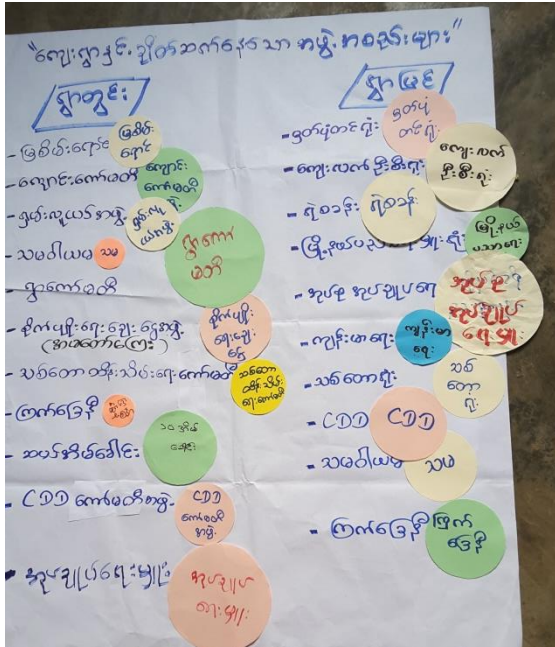 "ကျေးရွာနှင့် ချိတ်ဆက်နေသော အဖွဲ့အစည်းများ"
ရွာတွင်း
- မြစိမ်းရောင် မြစိမ်းရောင်
- ကျောင်းကော်မတီ ကျောင်းကော်မတီ
- ရှမ်းလူငယ်အဖွဲ့
- သမဝါယမ သမ
- ရွာကော်မတီ ရွာကော်မတီ
- စိုက်ပျိုးရေးချေးငွေအဖွဲ့ စိုက်ပျိုးရေးချေးငွေ
(အမတော်ကြေး)
- သစ်တောထိန်းသိမ်းရေးကော်မတီ သစ်တောထိန်းသိမ်းရေးကော်မတီ
- ကြက်ခြေနီ
- ဆယ်အိမ်ခေါင်း ၁၀ အိမ်ခေါင်း
- CDD ကော်မတီအဖွဲ့ CDD ကော်မတီအဖွဲ့
- အုပ်ချုပ်ရေးမှူး အုပ်ချုပ်ရေးမှူး
ရွာပြင်
- ဓါတ်ပုံတင်ရုံး ဓါတ်ပုံတင်ရုံး
- ကျေးလက်ဦးစီးရုံး ကျေးလက်ဦးစီးရုံး
- ရဲစခန်း ရဲစခန်း
- မြို့နယ် မြို့နယ်ပညာရေး
- အုပ်စုအုပ်ချုပ်ရေး အုပ်စုအုပ်ချုပ်ရေးမှူး
- ကျန်းမာရေး ကျန်းမာရေး
- သစ်တောရုံး သစ်တောရုံး
- CDD CDD
- သမဝါယမ သမ
- ကြက်ခြေနီ ကြက်ခြေနီ